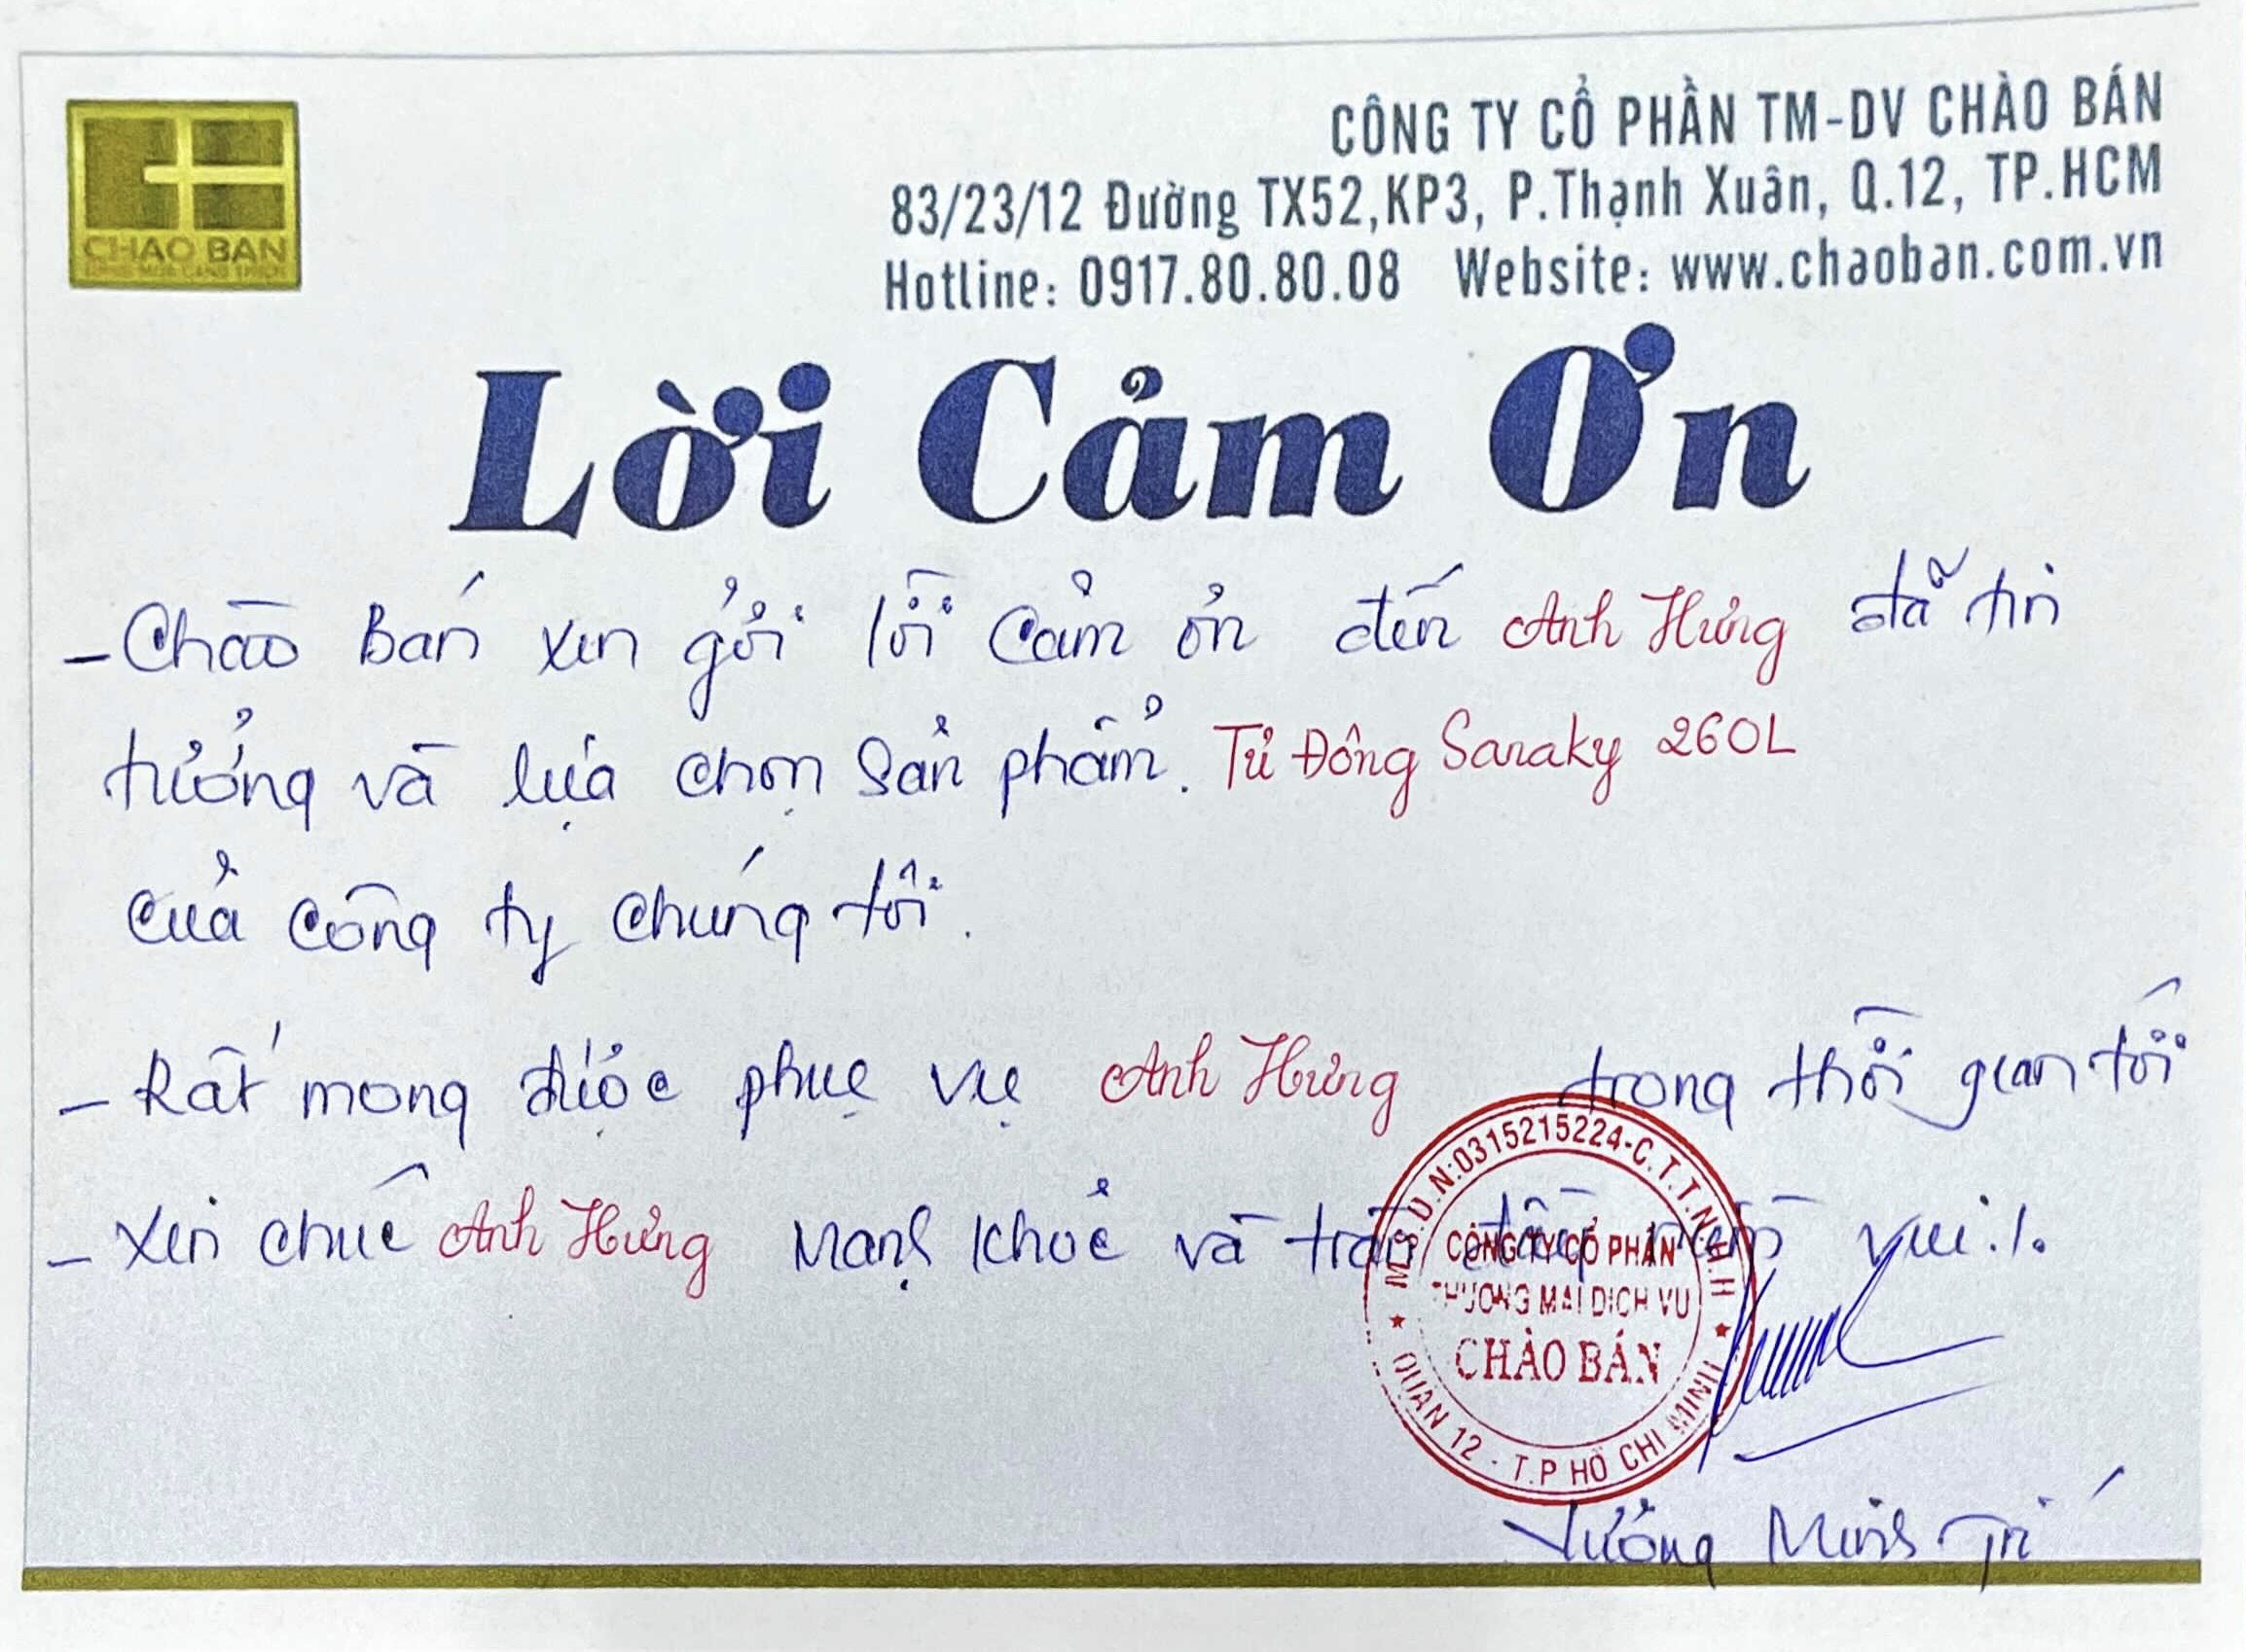 CÔNG TY CỔ PHẦN TM-DV CHÀO BÁN
83/23/12 Đường TX52,KP3, P.Thạnh Xuân, Q.12, TP.HCM
Hotline: 0917.80.80.08 Website: www.chaoban.com.vn
CHAO BAN
Lời Cảm Ơn
- Chào Bán xin gởi lời cảm ơn đến Anh Hưng đã tin
tưởng và lựa chọn sản phẩm. Tủ Đông Sanaky 260L
của công ty chúng tôi.
- Rất mong được phục vụ Anh Hưng trong thời gian tới
- Xin chúc Anh Hưng mạnh khoẻ và tràn đầy niềm vui./.
M.S.D.N:0315215224-C.T.T.N.H.H
CÔNG TY CỔ PHẦN
THƯƠNG MẠI DỊCH VỤ
CHÀO BÁN
QUẬN 12 - T.P HỒ CHÍ MINH
Tưởng Minh Trí